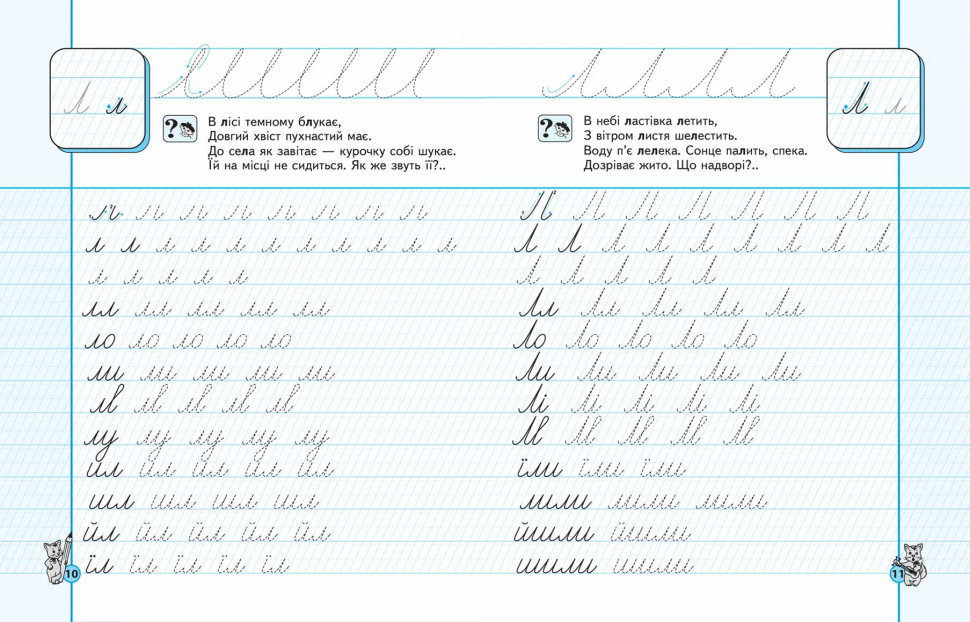 Л л
В лісі темному блукає,
Довгий хвіст пухнастий має.
До села як завітає — курочку собі шукає.
Їй на місці не сидиться. Як же звуть її?..
л л л л л л л л л л л
л л л л л
лл лл лл лл лл
ло ло ло ло ло
ли ли ли ли ли
лв лв лв лв лв
лу лу лу лу лу
ил ил ил ил ил
шл шл шл шл
йл йл йл йл йл
їл їл їл їл їл
10
Л л
В небі ластівка летить,
З вітром листя шелестить.
Воду п’є лелека. Сонце палить, спека.
Дозріває жито. Що надворі?..
Л Л Л Л Л Л Л Л Л
Л Л Л Л Л
Лл Лл Лл Лл Лл
Ло Ло Ло Ло Ло
Ли Ли Ли Ли Ли
Лі Лі Лі Лі Лі
Лв Лв Лв Лв Лв
їли їли їли
лили лили лили
йшли йшли
шили шили
11